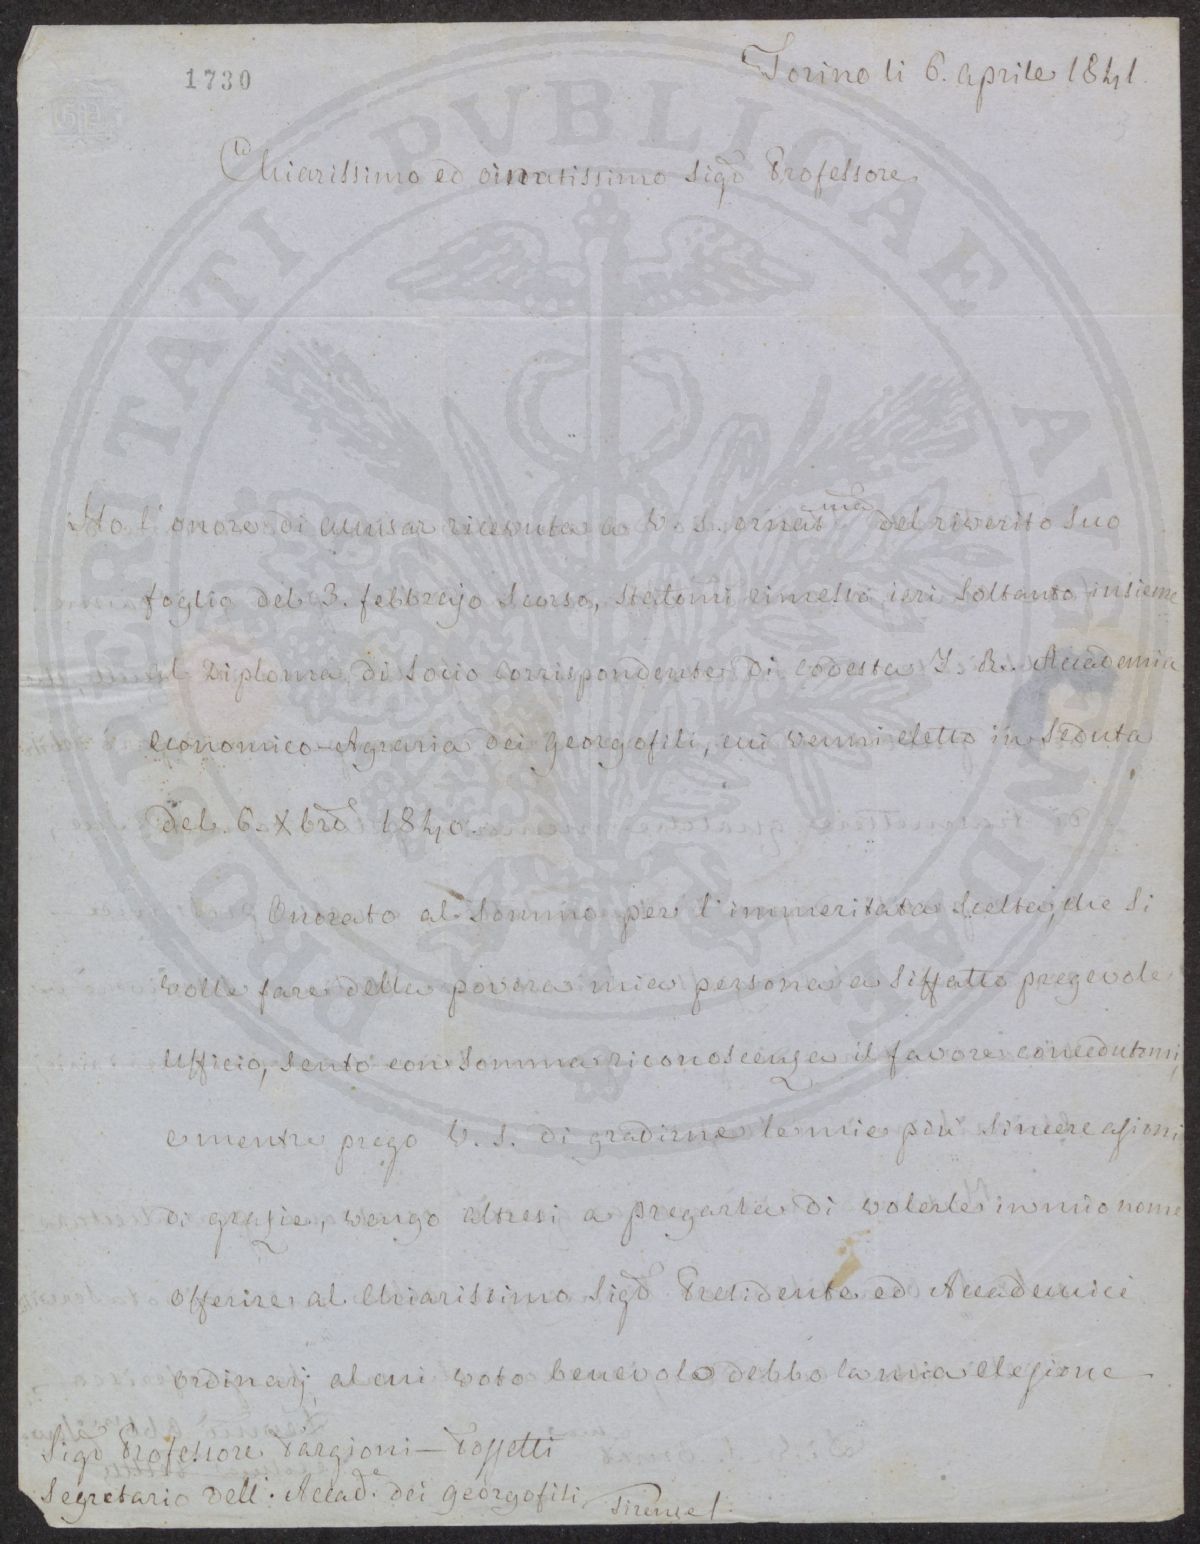 1730
Torino li 6. aprile 1841.
Chiarissimo ed ornatissimo Sigr Professore
Ho l'onore di accusar ricevuta a V. S. ornat.ma del riverito suo
foglio del 3. febbrajo scorso, statomi rimesso ieri soltanto insieme
al Diploma di Socio corrispondente di codesta I. R. Accademia
Economico-Agraria dei Georgofili, cui venni eletto in seduta
del 6. Xbre 1840.
Onorato al sommo per l'immeritata scelta, che si
volle fare della povera mia persona a siffatto pregevole
Ufficio, sento con somma riconoscenza il favore concedutomi,
e mentre prego V. S. di gradirne le mie più sincere azioni
di grazie, vengo altresi a pregarla di volerle in mio nome
offerire al Chiarissimo Sigr Presidente ed Accademici
ordinarj al cui voto benevolo debbo la mia elezione
Sigr Professore Targioni-Tozzetti
Segretario dell'Accad.a dei Georgofili
Firenze
PROSPERITATI PVBLICAE AVGENDAE